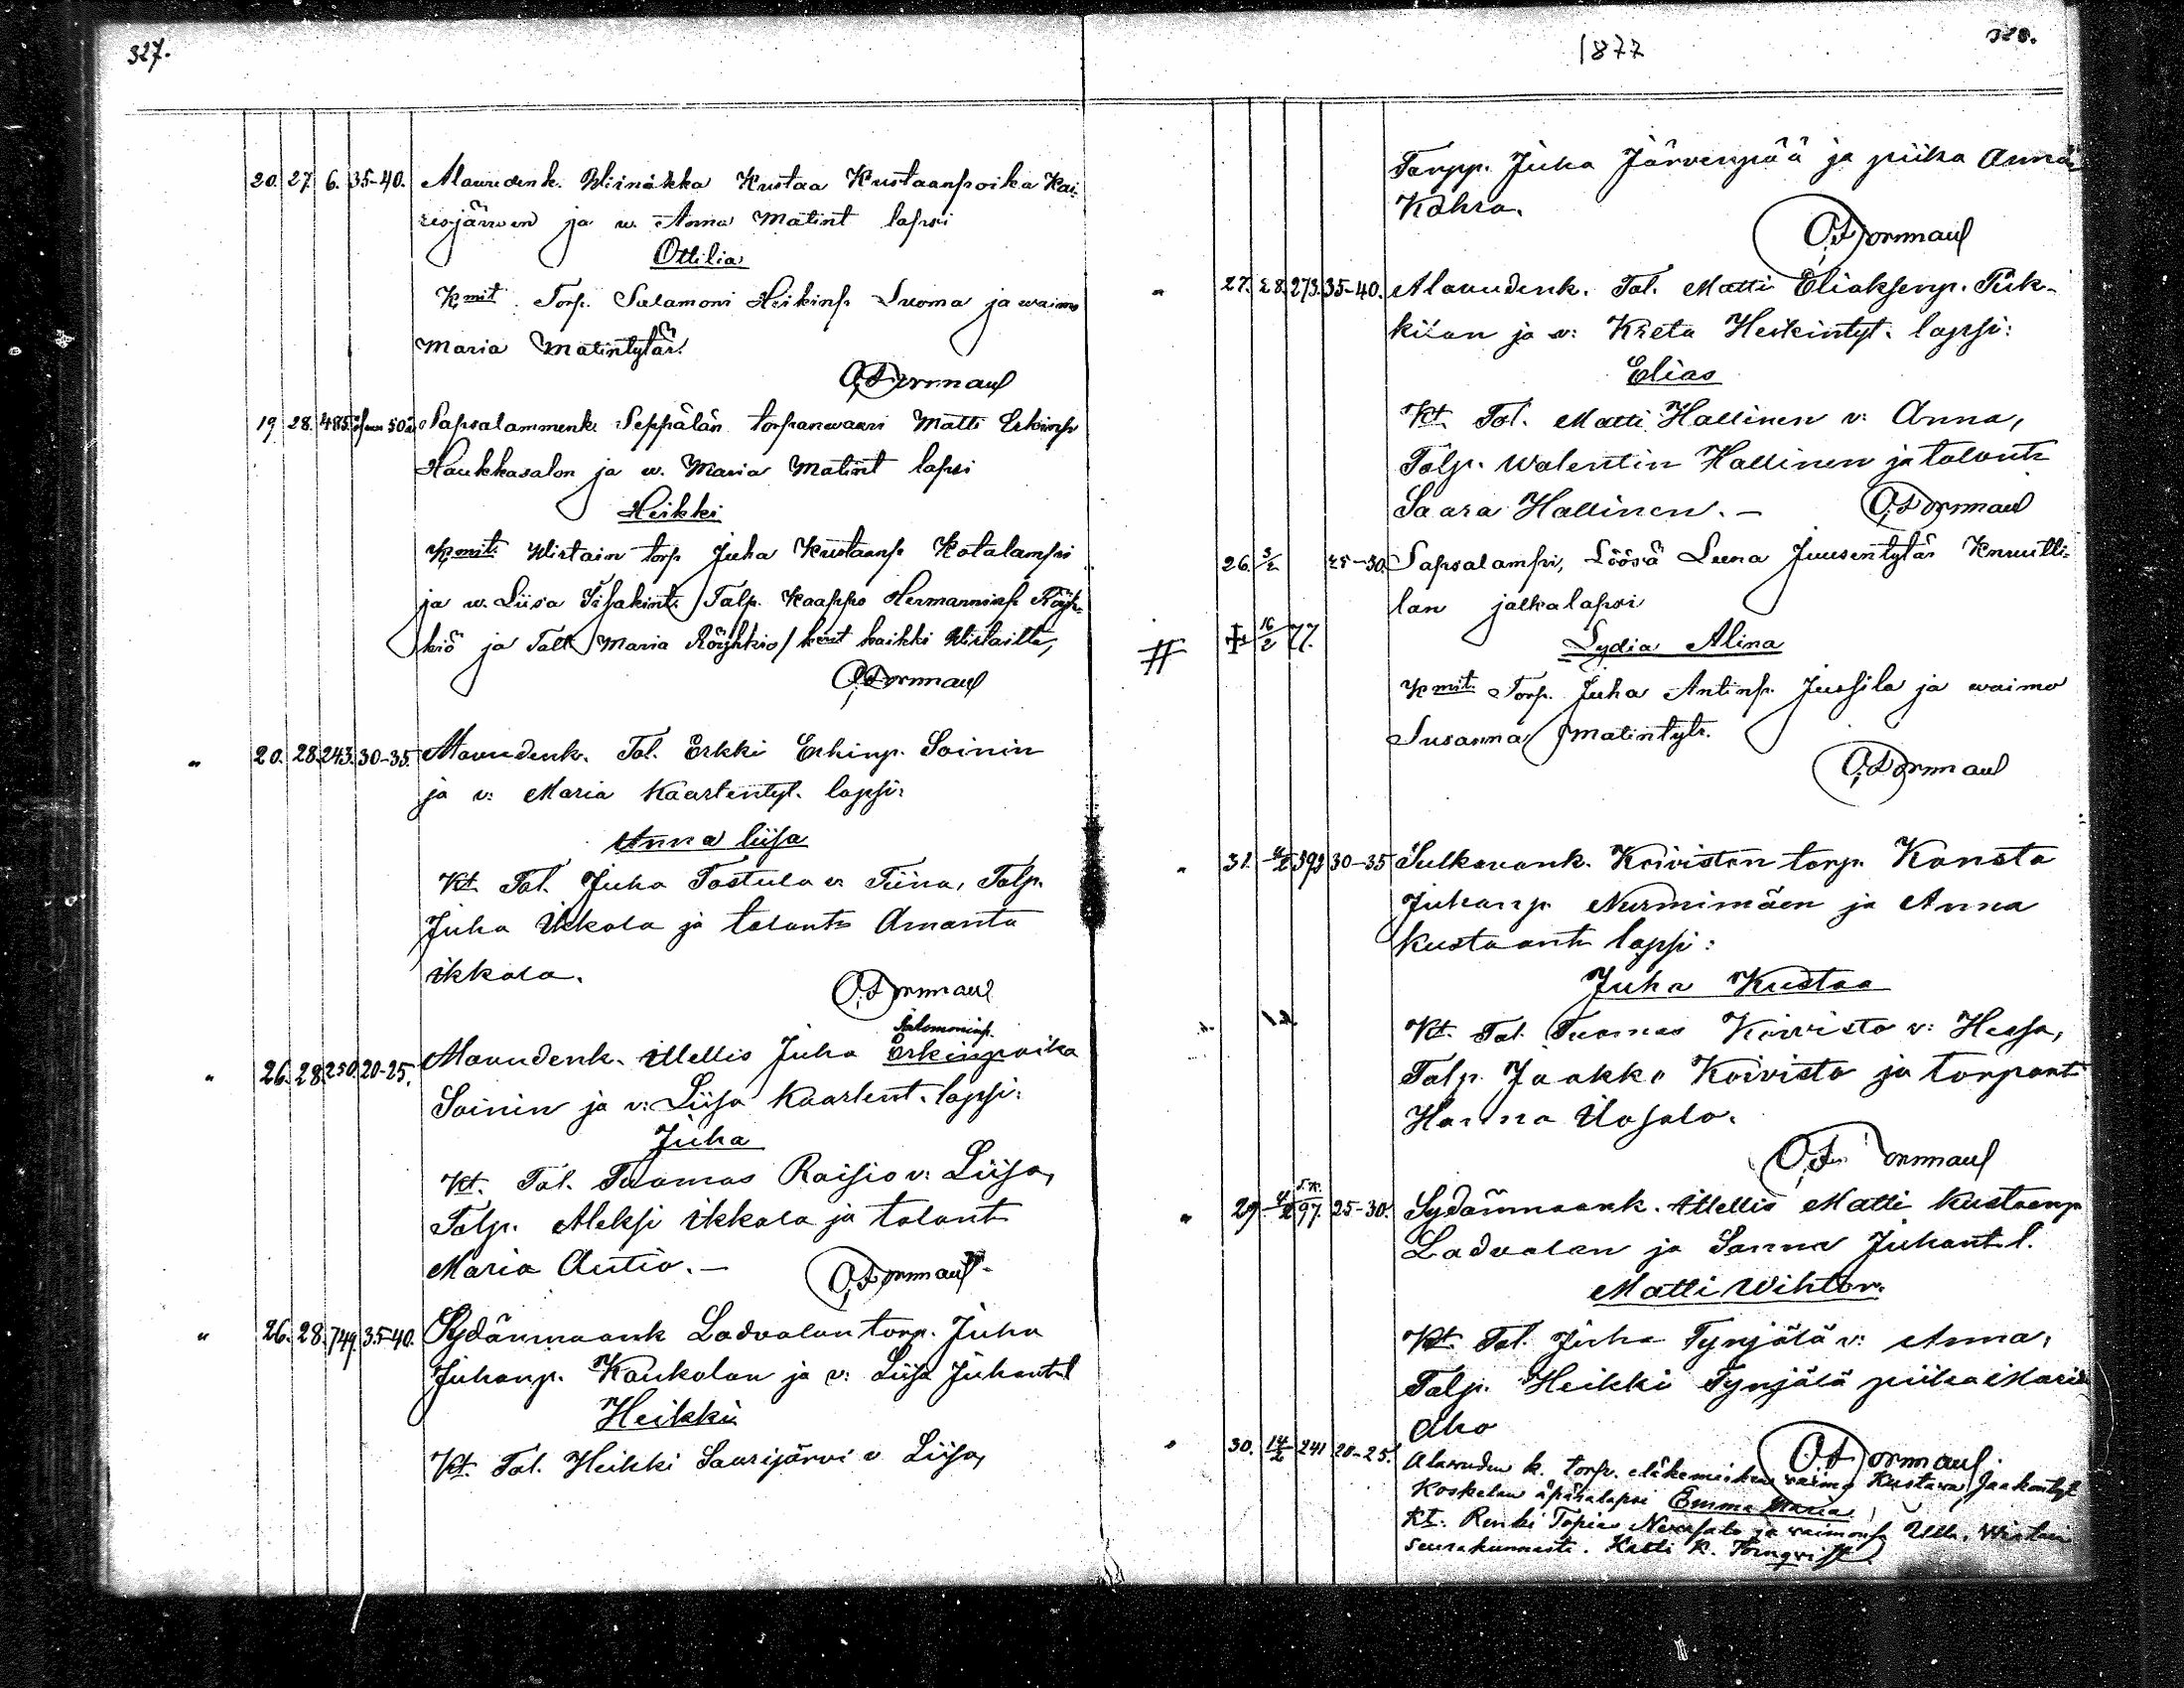 327.
20. 27. 6. 35-40. Alavudenk. Kustaa Kustaanpoika Kai-
resjärwen ja w. Anna Matint lapsi
Ottilia
Kmit. Torp. Salamoni Heikinp. Luoma ja waimo
Maria Matintytär.
O. Formaul
19 28. 485. Sapsalammenk. Seppälän torpanwaari Matti Erkinp
Haukkasalon ja w. Maria Matint lapsi
Heikki
Kmit. Wirtain torp Juha Kustaanp Kotalampi
ja w. Liisa Talp. Kaappo Hermanninp Röyh-
kiö ja Talt Maria Röyhkiö / kaikki Wirtailta,
O. Formaul
" 20. 28. 243. 30-35. Alavudenk. Tal. Erkki Erkinp. Soinin
ja v: Maria Kaarlentyt. lapsi:
Anna Liisa
Kt. Tal. Juha Tastula v: Tiina, Talp.
Juha Ikkala ja talont. Amanta
Ikkala.
O. Formaul
Salomoninp.
" 26. 28. 250. 20-25. Alavudenk. Itellis Juha Erkinpoika
Soinin ja v: Liisa Kaarlent. lapsi:
Juha
Kt. Tal. Tuomas Raisio v: Liisa,
Talp. Aleksi Ikkala ja talont
Maria Autio. —
O. Formaul
" 26. 28. 749. 35-40. Sydänmaank Ladvalan torp. Juha
Juhanp. Kaukolan ja v: Liisa Juhant l
Heikki
Kt. Tal. Heikki Saarijärvi v Liisa,
1877
328.
Torpp. Juha Järvenpää ja piika Anna
Kahra.
O. Formaul
" 27. 28. 273. 35-40. Alavudenk. Tal. Matti Eliaksenp. Tuk-
kiian ja v: Kreta Heikintyt. lapsi:
Elias
Kt. Tal. Matti Hallinen v: Anna,
Talp. Walentin Hallinen ja talont.
Saara Hallinen. —
O. Formaul
26. 3/2 25-30. Sapsalampi, Löösä Leena Juusentytär Knuutti-
lan jalkalapsi
# † 16/2 77. Lydia Alina
Kmit. Torp. Juha Antinp. Jussila ja waimo
Susanna Matintytr.
O. Formaul
" 31. 4/2 593 30-35 Sulkavank. Koiviston torp. Konsta
Juhanp. Nurmimäen ja Anna
Kustaant. lapsi:
Juha Kustaa
Kt. Tal. Tuomas Koivisto v: Hessa,
Talp. Jaakko Koivisto ja torpant
Hanna Uosalo.
O. Formaul
" 29 4/2 97. 25-30. Sydänmaank. Itellis Matti Kustaanp
Ladvalan ja Sanna Juhant l.
Matti Wihtor.
Kt. Tal. Juha Tynjälä v: Anna,
Talp. Heikki Tynjälä piika Maria
Aho
O. Formaul.
" 30. 14/2 241 20-25. Alavuden k. torp. waimo Kustava Jaakontyt
Koskelan äpärälapsi Emma Maria.
Kt. Renki Tapia ja vaimonsa Ulla, Wirtain
seurakunnasta. Kasti K. Törnqvist